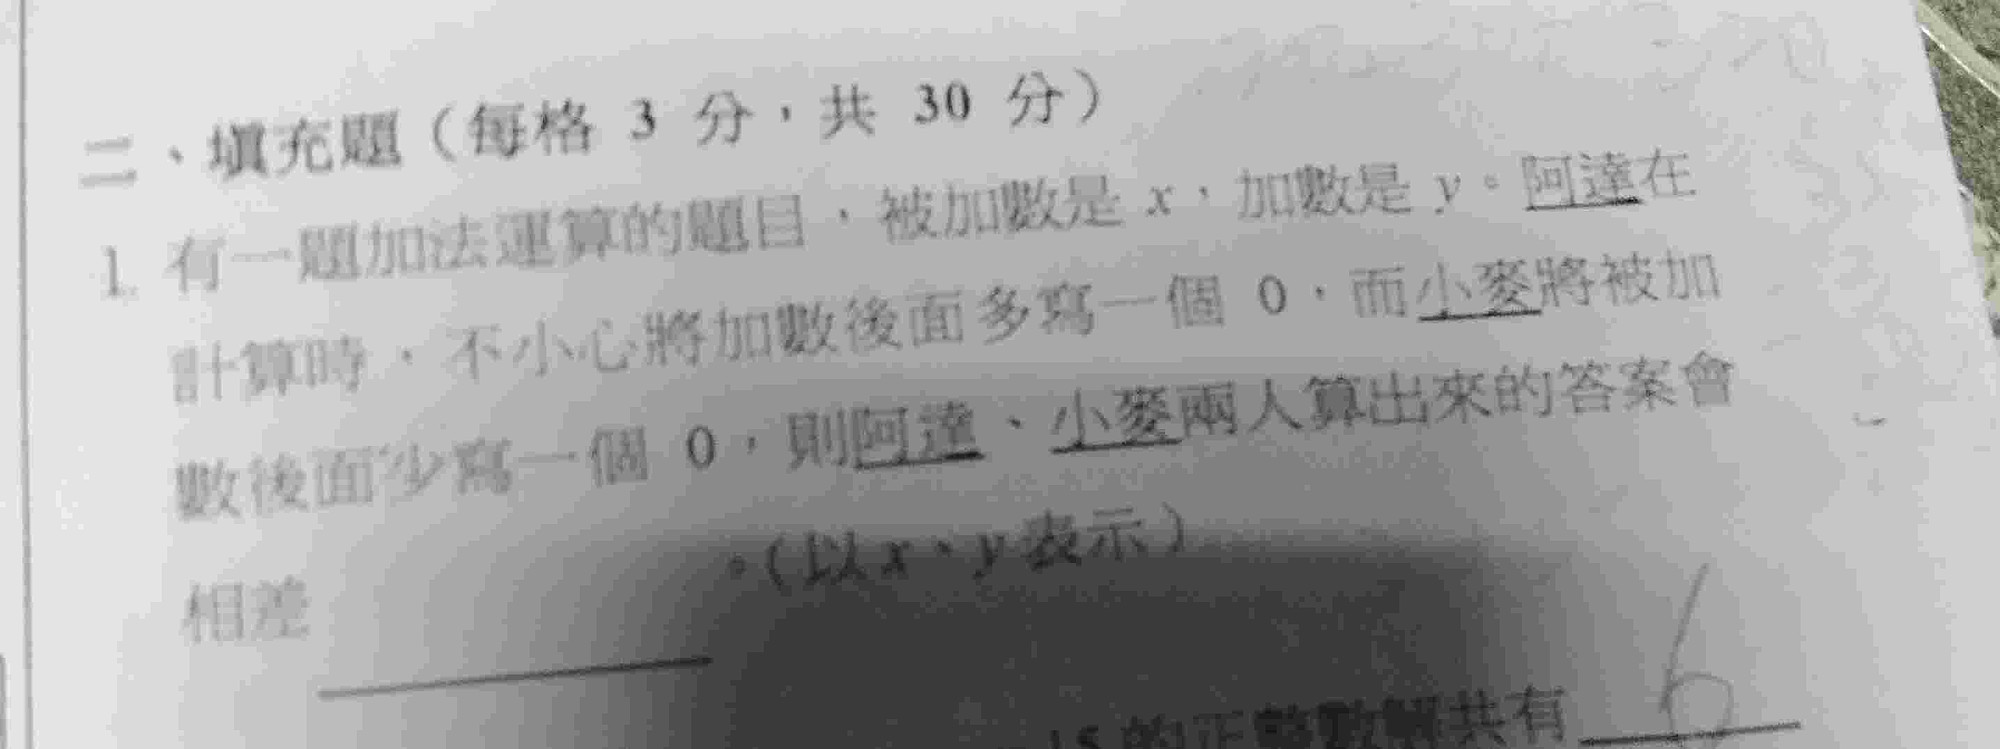 二、填充題（每格 3 分，共 30 分）
1. 有一題加法運算的題目，被加數是 x，加數是 y。阿達在
計算時，不小心將加數後面多寫一個 0，而小麥將被加
數後面少寫一個 0，則阿達、小麥兩人算出來的答案會
相差＿＿＿＿＿＿。(以 x、y 表示)
15 的正整數解共有 6